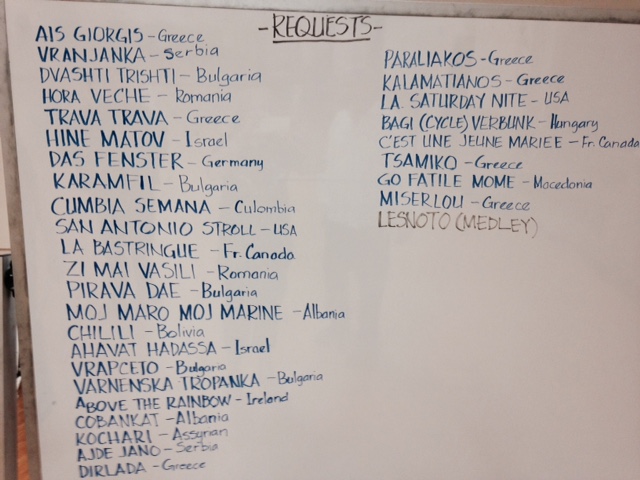 -REQUESTS-
AIS GIORGIS - Greece
VRANJANKA - Serbia
DVASHTI TRISHTI - Bulgaria
HORA VECHE - Romania
TRAVA TRAVA - Greece
HINE MATOV - Israel
DAS FENSTER - Germany
KARAMFIL - Bulgaria
CUMBIA SEMANA - Culombia
SAN ANTONIO STROLL - USA
LA BASTRINGUE - Fr. Canada
ZI MAI VASILI - Romania
PIRAVA DAE - Bulgaria
MOJ MARO MOJ MARINE - Albania
CHILILI - Bolivia
AHAVAT HADASSA - Israel
VRAPCETO - Bulgaria
VARNENSKA TROPANKA - Bulgaria
ABOVE THE RAINBOW - Ireland
COBANKAT - Albania
KOCHARI - Assyrian
AJDE JANO - Serbia
DIRLADA - Greece
PARALIAKOS - Greece
KALAMATIANOS - Greece
LA. SATURDAY NITE - USA
BAGI (CYCLE) VERBUNK - Hungary
C'EST UNE JEUNE MARIEE - Fr. Canada
TSAMIKO - Greece
GO FATILE MOME - Macedonia
MISERLOU - Greece
LESNOTO (MEDLEY)